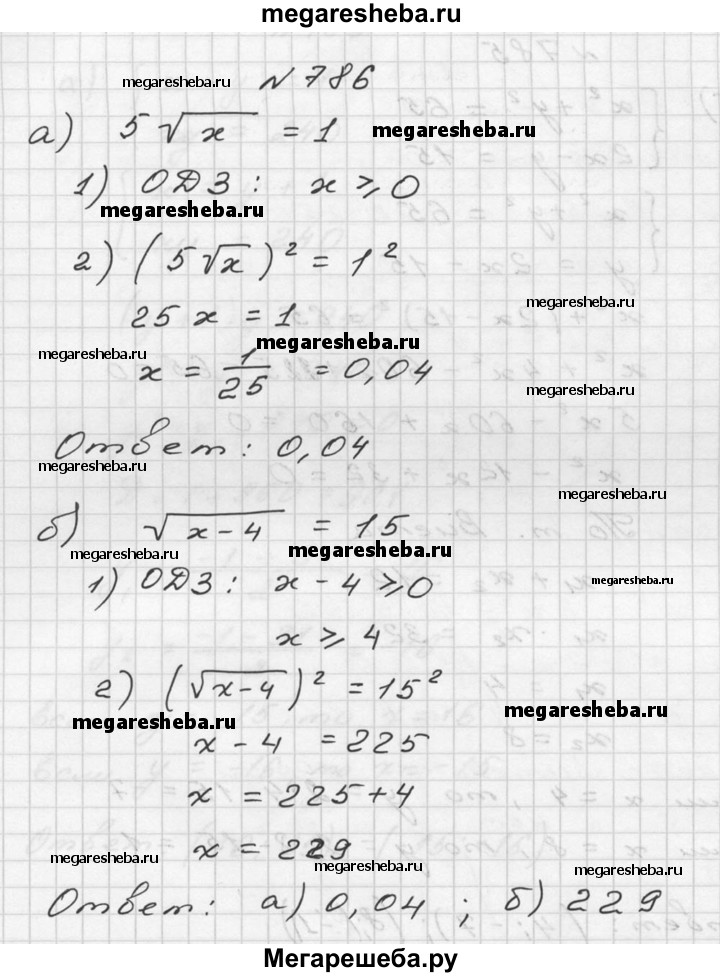 megaresheba.ru
megaresheba.ru № 786
а) 5√x = 1 megaresheba.ru
1) ОДЗ: x ⩾ 0
megaresheba.ru
2) (5√x)² = 1²
megaresheba.ru
25x = 1
megaresheba.ru megaresheba.ru
x = 1/25 = 0,04
megaresheba.ru
Ответ: 0,04
megaresheba.ru
megaresheba.ru
б) √x-4 = 15
megaresheba.ru megaresheba.ru
1) ОДЗ: x - 4 ⩾ 0 megaresheba.ru
x ⩾ 4
2) (√x-4)² = 15²
megaresheba.ru megaresheba.ru
x - 4 = 225
x = 225+4
x = 229
megaresheba.ru megaresheba.ru megaresheba.ru
Ответ: а) 0,04 ; б) 229
Мегарешеба.ру